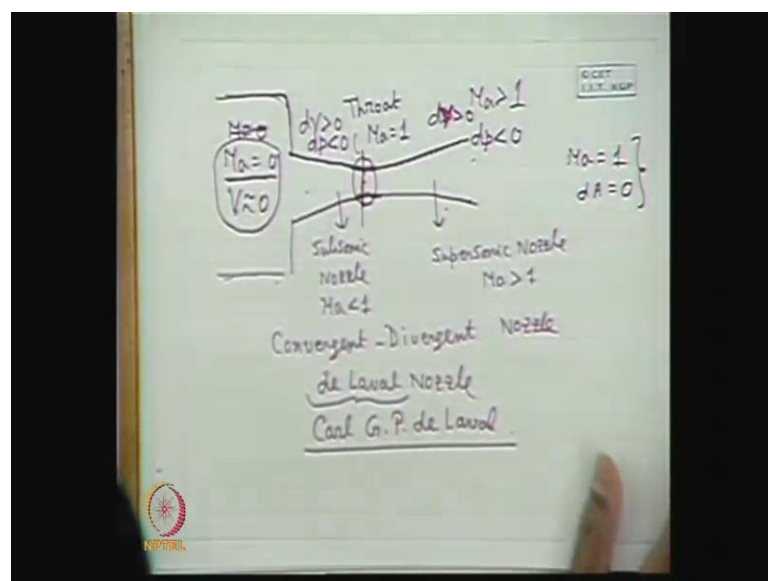 © CET
I.I.T. KGP
Throat
Ma > 1
dV>0
dp<0
Ma = 1
>0
dp<0
Ma = 0
V≈0
Ma = 1
dA = 0
Subsonic
Nozzle
Ma < 1
Supersonic Nozzle
Ma > 1
Convergent - Divergent Nozzle
de Laval Nozzle
Carl G. P. de Laval
NPTEL